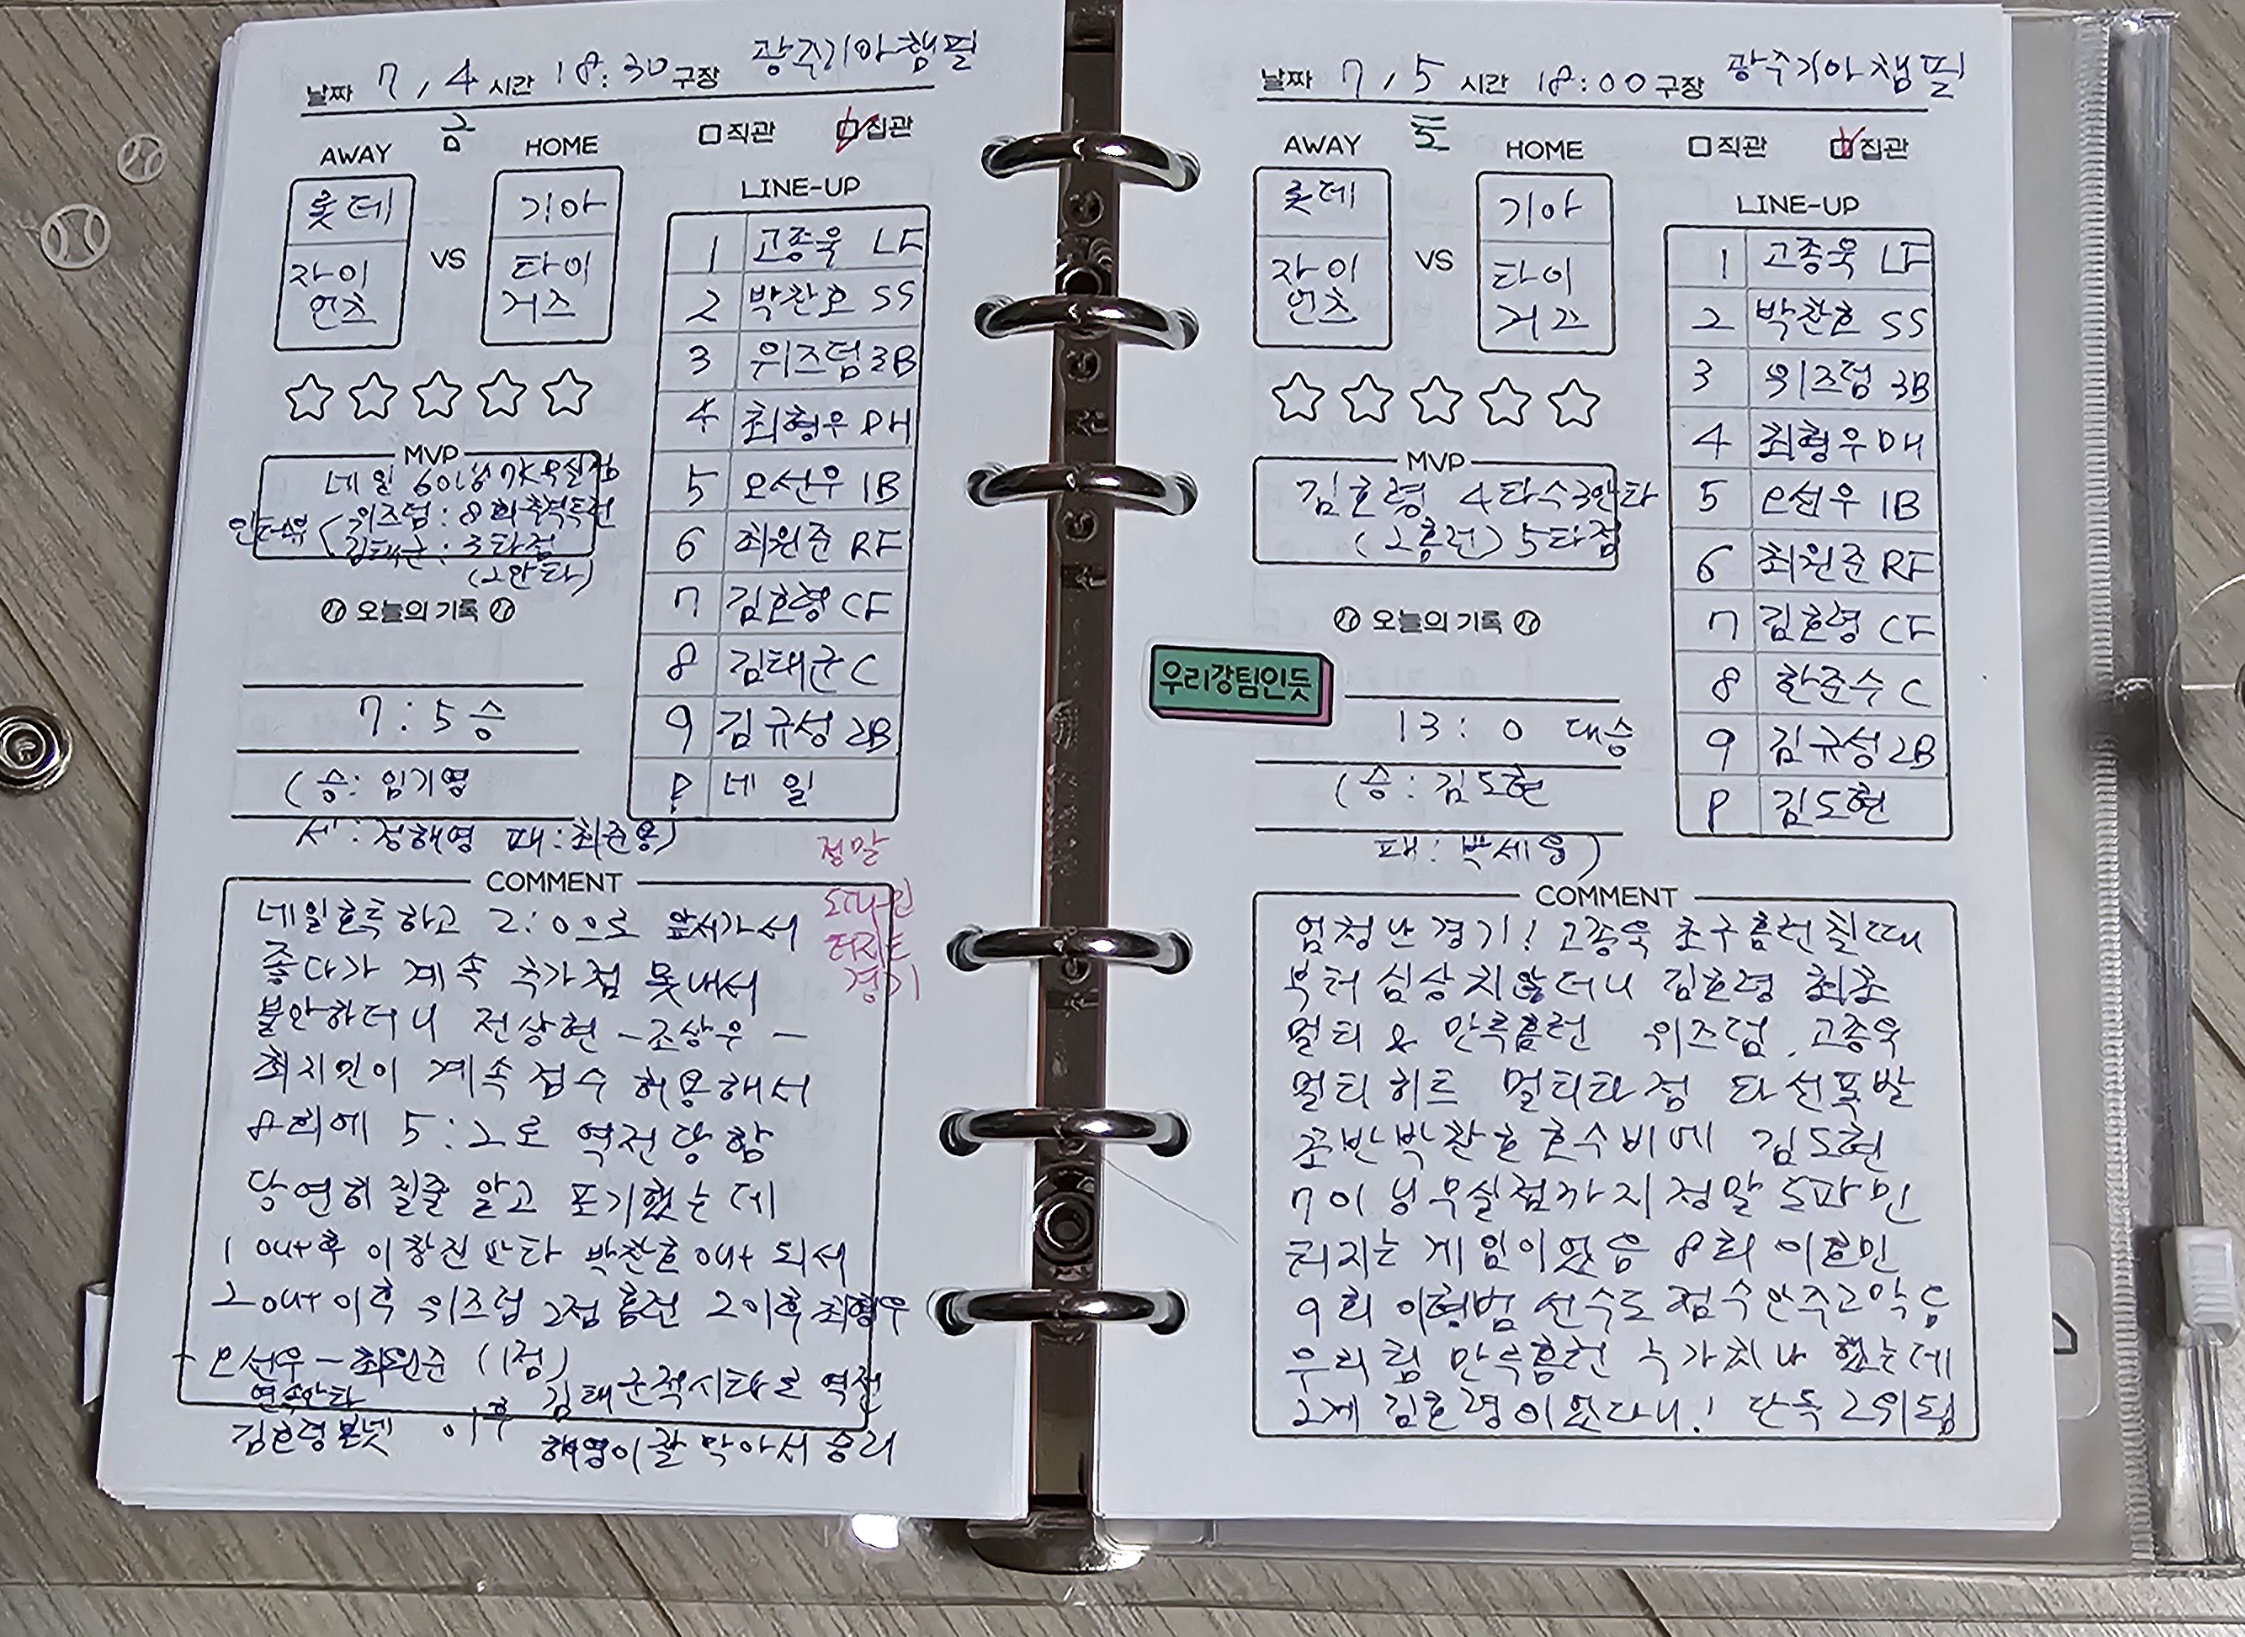 날짜 7 / 4 시간 18:30 구장 광주기아챔필
금
AWAY HOME
□ 직관 ☑ 집관
롯데
자이
언츠
VS
기아
타이
거즈
LINE-UP
1 고종욱 LF
2 박찬호 SS
3 위즈덤 3B
4 최형우 DH
5 오선우 1B
6 최원준 RF
7 김호령 CF
8 김태군 C
9 김규성 2B
P 네일
MVP
네일 6이닝 7K 무실점
인터뷰 ( 위즈덤 : 8회 추격투런
김태군 : 3타점
(2안타)
오늘의 기록
7 : 5 승
(승: 임기영
세: 정해영 패: 최준용)
정말
도파민
터지는
경기
COMMENT
네일호투하고 2:0으로 앞서가서
좋다가 계속 추가점 못내서
불안하더니 전상현 - 조상우 -
최지민이 계속 점수 허용해서
8회에 5:2로 역전당함
당연히 질줄 알고 포기했는데
1 out후 이창진 안타 박찬호 out 되서
2 out 이후 위즈덤 2점 홈런 2이후 최형우
- 오선우 - 최원준 (1점)
연속안타
김태군적시타로 역전
김호령 볼넷 이후
해영이 잘 막아서 승리
날짜 7 / 5 시간 18:00 구장 광주기아챔필
토
AWAY HOME
□ 직관 ☑ 집관
롯데
자이
언츠
VS
기아
타이
거즈
LINE-UP
1 고종욱 LF
2 박찬호 SS
3 위즈덤 3B
4 최형우 DH
5 오선우 1B
6 최원준 RF
7 김호령 CF
8 한준수 C
9 김규성 2B
P 김도현
MVP
김호령 4타수3안타
(2홈런) 5타점
오늘의 기록
우리강팀인듯
13 : 0 대승
(승: 김도현
패: 박세웅)
COMMENT
엄청난 경기! 고종욱 초구홈런칠때
부터 심상치않더니 김호령 최초
멀티 & 만루홈런 위즈덤, 고종욱
멀티히트 멀티타점 타선폭발
초반박찬호 호수비에 김도현
7이닝무실점까지 정말 도파민
터지는 게임이었음 8회 이호민
9회 이형범 선수도 점수안주고막음
우리팀 만루홈런 누가치나 했는데
2게 김호령이었다니! 단독 2위됨